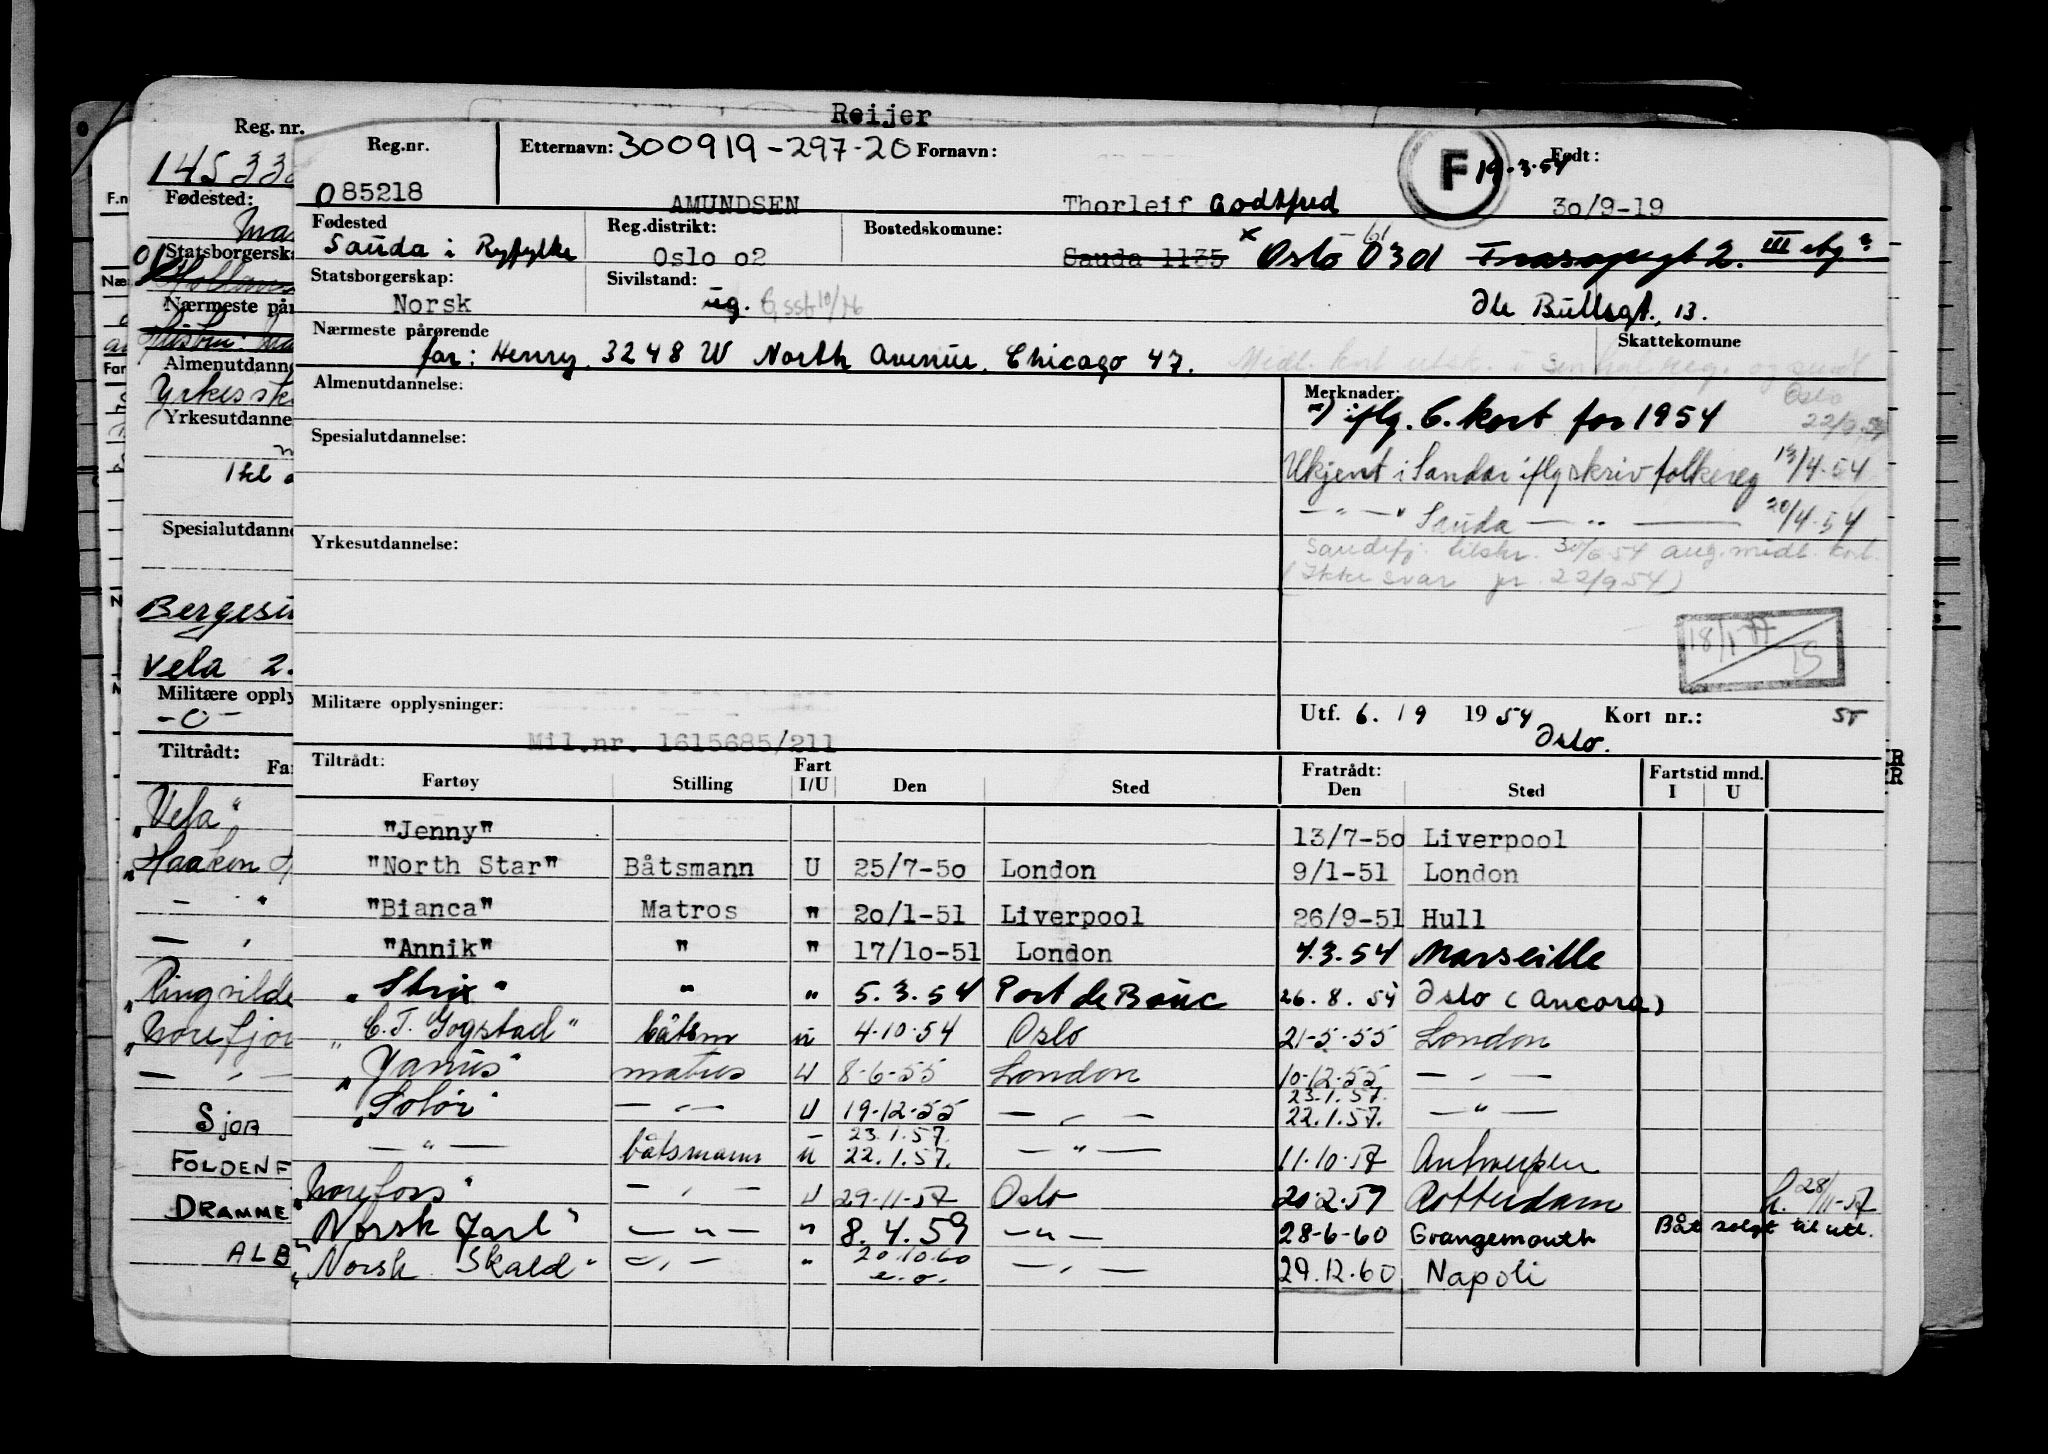 Reijer
Reg. nr.
Reg.nr.
Etternavn: 300919-297-20 Fornavn:
F
19.3.54
Født:
085218
AMUNDSEN
Thorleif Godtfred
30/9-19
Fødested
Sauda i Ryfylke
Reg.distrikt:
Oslo 02
Bostedskomune:
Sauda 1135 x Oslo 0301
III etg
Statsborgerskap:
Norsk
Sivilstand:
ug.
Ole Bullsgt. 13.
Nærmeste pårørende
far: Henry. 3248 W North Avenue. Chicago 47.
Skattekomune
Almenutdannelse:
Merknader:
x) iflg. C. kort for 1954
Oslo
Spesialutdannelse:
Ukjent i Sandar iflg skriv folkereg 13/4-54
— " — " Sauda — " — 20/4-54
Yrkesutdannelse:
Sandefj. tilskr. 30/6 54 ang. midl. kort.
(Ikke svar pr. 22/9 54)
18/1 77
Militære opplysninger:
Mil.nr. 1615685/211
Utf. 6. / 9 1954 Kort nr.:
Oslo.
Tiltrådt:
Fartøy Stilling Fart I/U Den Sted
Fratrådt:
Den Sted
Fartstid mnd.
I U
"Jenny" 13/7-50 Liverpool
"North Star" Båtsmann U 25/7-50 London 9/1-51 London
"Bianca" Matros " 20/1-51 Liverpool 26/9-51 Hull
"Annik" " " 17/10-51 London 4.3.54 Marseille
"Strix" " " 5.3.54 Port de Bouc 26.8.54 Oslo (Ancora)
"C.T. Gogstad" båtsm u 4-10-54 Oslo 21-5-55 London
"Janus" matros U 8-6-55 London 10-12-55 — " —
"Solør" — " — U 19-12-55 — " — 23.1.57. 22.1.57. — " —
— " — båtsmann u 23.1.57. 22.1.57. — " — 11-10-57 Antwerpen
"Norefoss" — " — U 29-11-57 Oslo 20-2-59 Rotterdam h. 28/11-57
"Norsk Jarl" — " — " 8.4.59 — " — 28-6-60 Grangemouth Båt solgt til utl.
"Norsk Skald" — " — " 20.10.60 e.o. — " — 29.12.60 Napoli
Fødested:
Statsborgersk
Nærmeste pår
Almenutdanne
Yrkessk
Yrkesutdanne
Spesialutdanne
Vela 2.
Militære opply
-0-
Tiltrådt:
"Vela"
"Haakon
"Ringvilde
"Norefjor
SJOA
FOLDENF
DRAMME
ALB